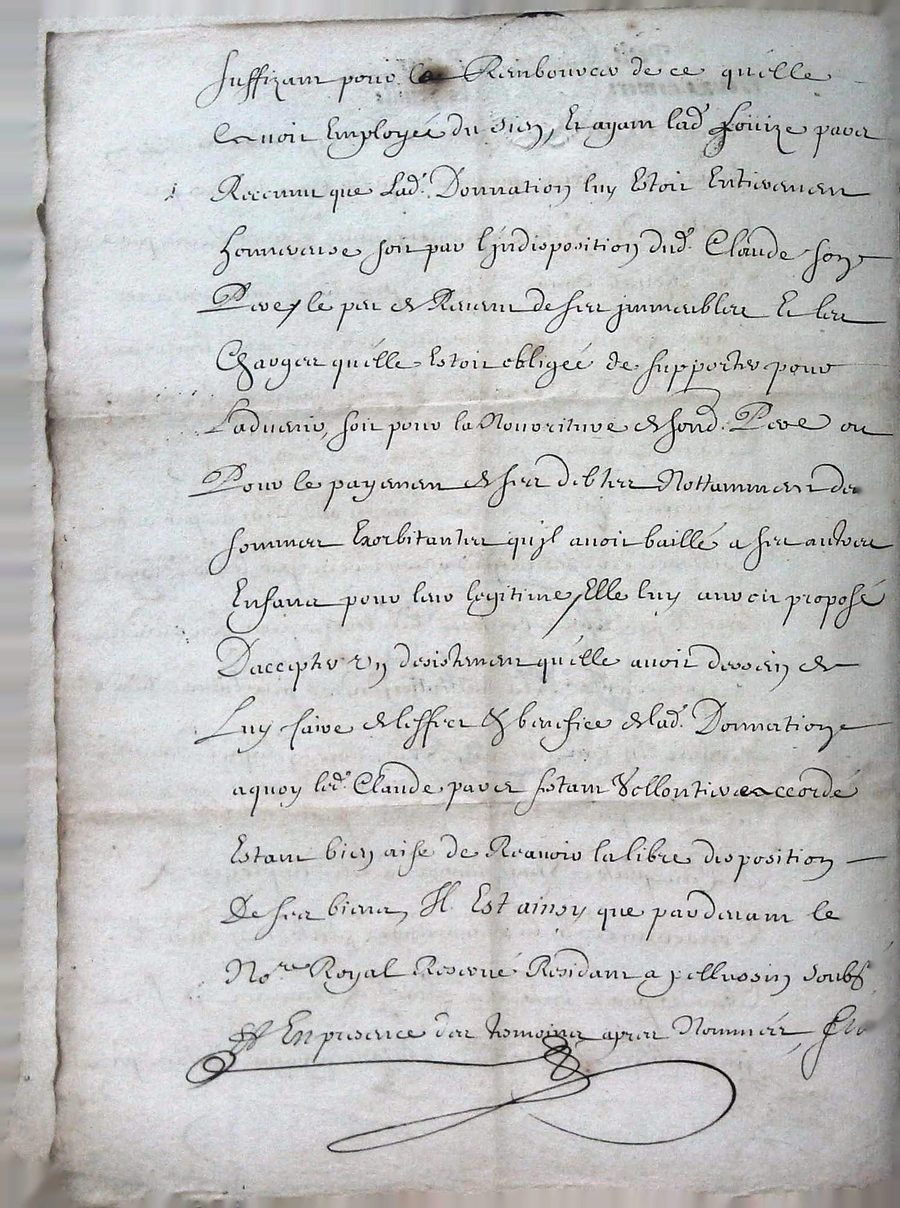 suffizant pour le Renbourcer de ce qu'elle
avoit Employée du sien, Et ayant lad. Louize
Recconu que Lad. Donnation luy Estoit Entierement
honnereuse soit par l'indisposition dud. Claude son
Pere, le peu de Revenu de ses jmmeubles Et les
Charges qu'elle Estoit obligée de supporter pour
L'advenir, soit pour la Nourriture de sond. Pere ou
Pour le payement de ses debtes Nottamment des
sommes Exorbitantes qu'jl avoit baillé a ses autres
Enfans pour leur legitime, Elle luy auroit proposé
D'accepter Un desistement qu'elle avoit dessein de
Luy faire de l'effect & benefice de lad. Donnation
a quoy led. Claude estant Vollontiers accordé
Estant bien aise de Reavoir la libre disposition
De ses biens, Il Est ainsy que pardevant le
No.re Royal Reservé Residant a pellussin soubs.
Et En presence des tesmoins apres Nommés,